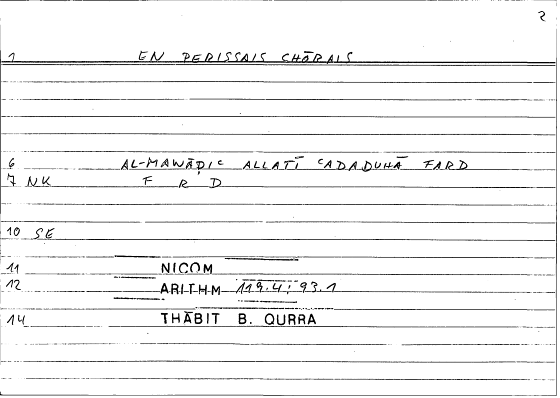 2
1 EN PERISSAIS CHŌRAIS
6 AL-MAWĀḌIʿ ALLATĪ ʿADADUHĀ FARD
7 NK F R D
10 SE
11 NICOM
12 ARITHM 119.4; 93.1
14 THĀBIT B. QURRA